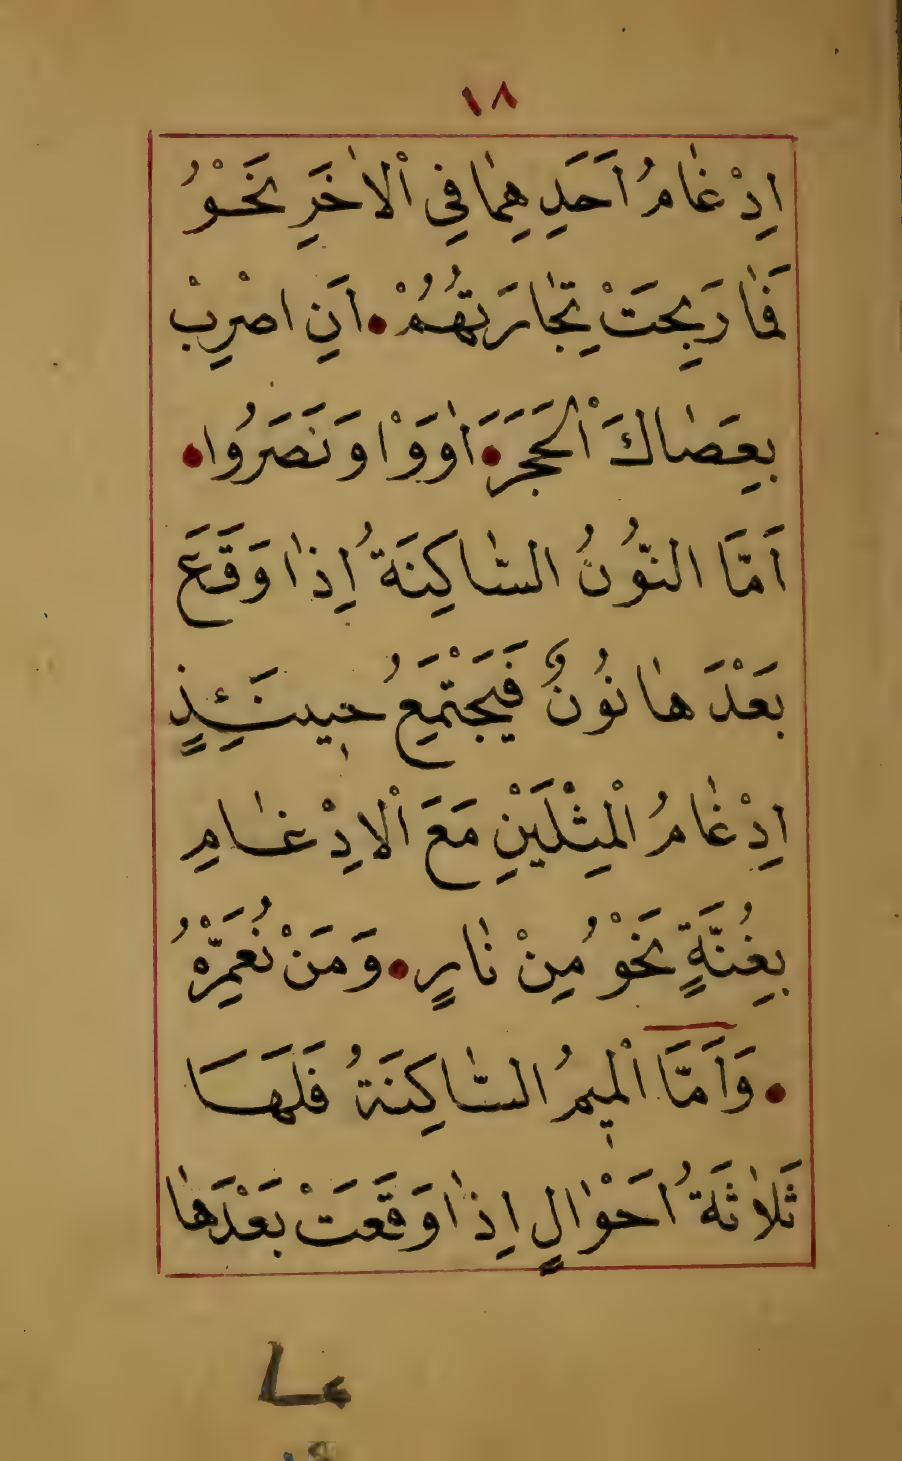 ١٨
اِدْغٰامُ اَحَدِهِمٰا فِي اْلاٰخَرِ نَحْوُ
فَمٰا رَبِحَتْ تِجٰارَتُهُمْ • اَنِ اضْرِبْ
بِعَصٰاكَ اْلحَجَرَ • اٰوَوْا وَنَصَرُوا •
اَمَّا النُّونُ السّٰاكِنَةُ اِذٰا وَقَعَ
بَعْدَهٰا نُونٌ فَيَجْتَمِعُ حٖينَئِذٍ
اِدْغٰامُ اْلمِثْلَيْنِ مَعَ اْلاِدْغٰامِ
بِغُنَّةٍ نَحْوُ مِنْ نٰارٍ • وَمَنْ نُعَمِّرْهُ
• وَاَمَّا اْلمٖيمُ السّٰاكِنَةُ فَلَهَا
ثَلاٰثَةُ اَحْوٰالٍ اِذٰا وَقَعَتْ بَعْدَهٰا